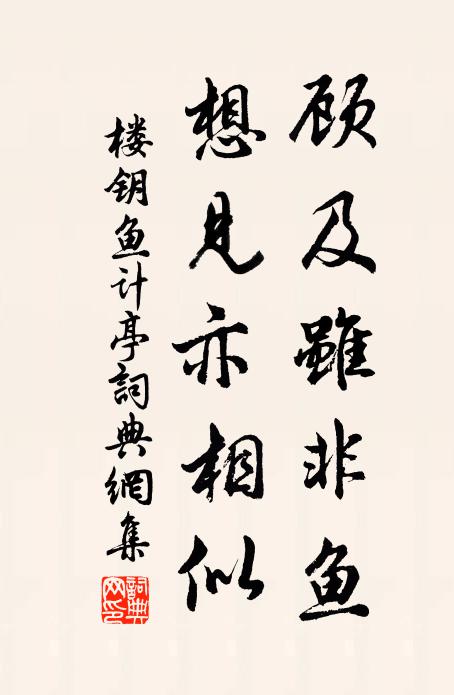 顾及雖非鱼
想见亦相似
楼钥鱼计亭詞典網集
詞典网印